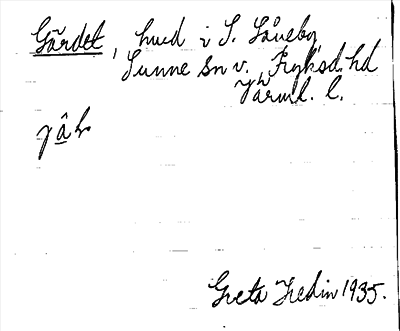 Gärdet, hmd i S. Såneby,
Sunne sn v. Fryksd. hd
Värml. l.
Greta Hedin 1935.